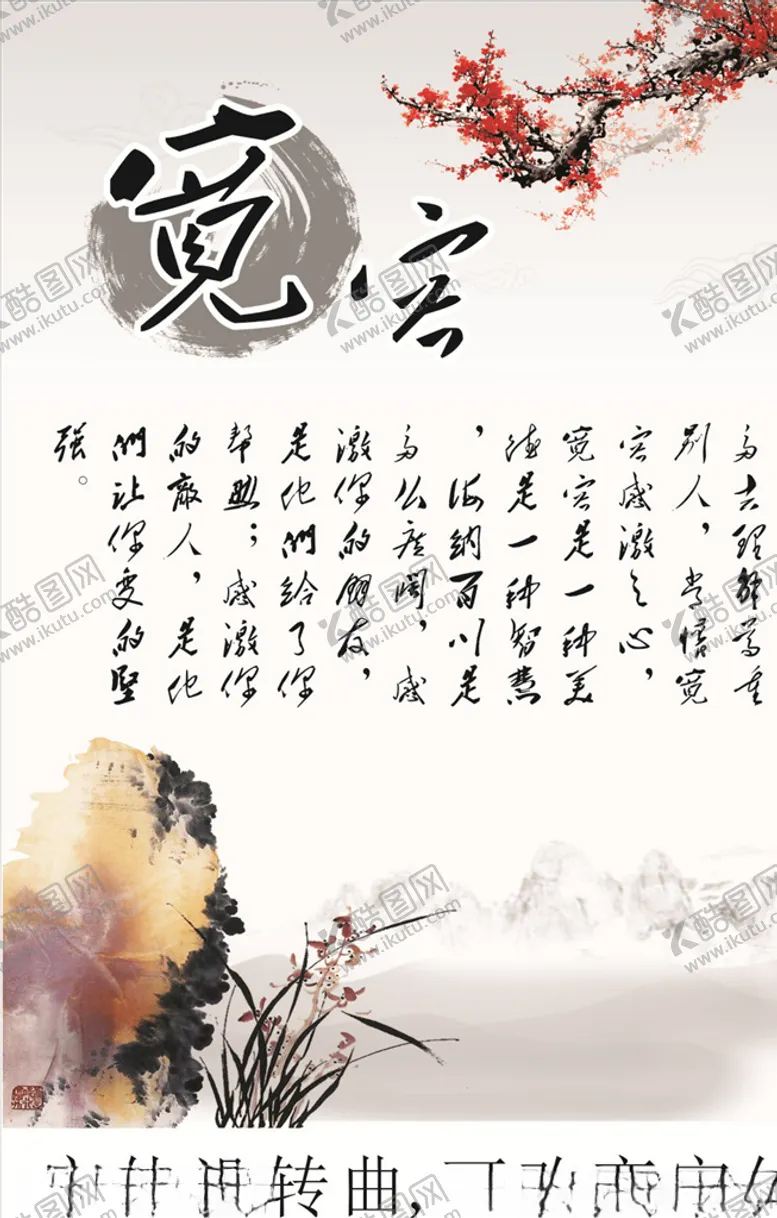 寬容
多去理解尊重
别人，常懷寬
容感激之心，
寬容是一种美
德是一种智慧
，海纳百川是
多么广阔，感
激你的朋友，
是他們给了你
帮助；感激你
的敵人，是他
們让你变的堅
强。
转曲，
酷图网
www.ikutu.com